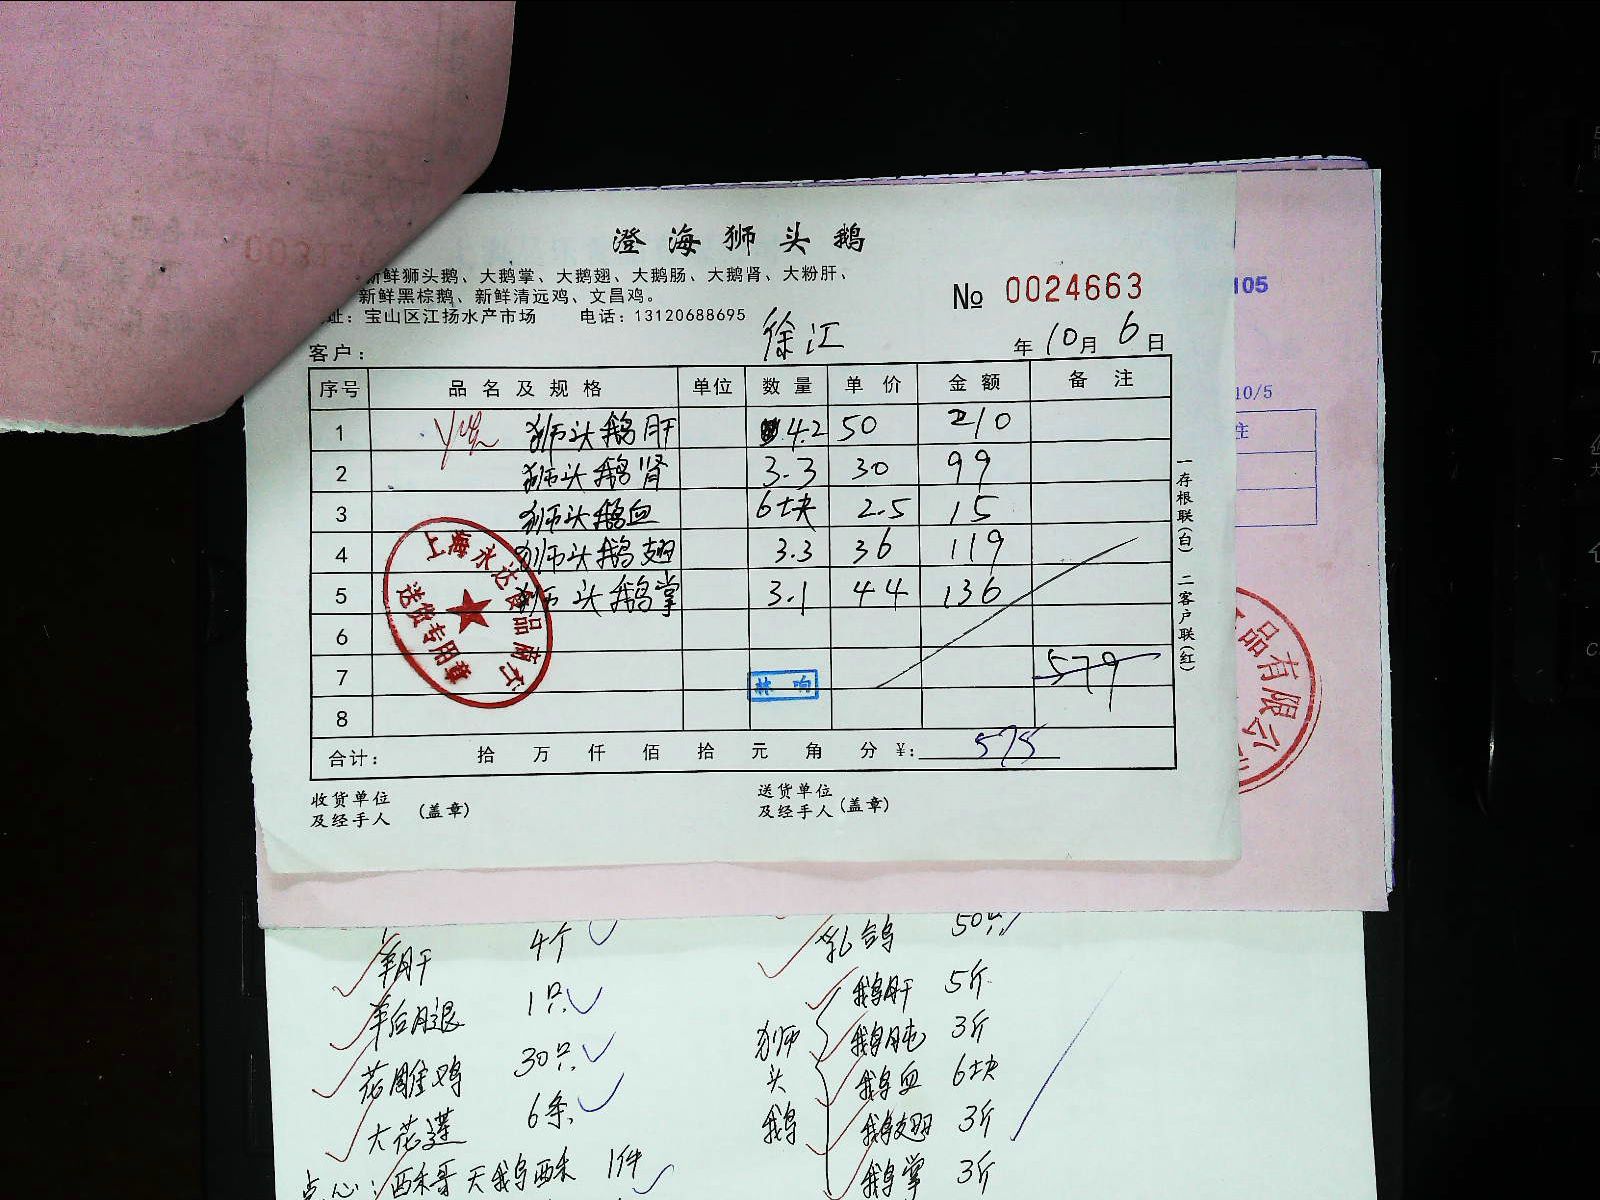 澄海狮头鹅
新鲜狮头鹅、大鹅掌、大鹅翅、大鹅肠、大鹅肾、大粉肝、
新鲜黑棕鹅、新鲜清远鸡、文昌鸡。
址：宝山区江扬水产市场 电话：13120688695
№ 0024663
客户： 徐汇 年 10月 6日
序号 品名及规格 单位 数量 单价 金额 备注
1 狮头鹅肝 4.2 50 210
2 狮头鹅肾 3.3 30 99
3 狮头鹅血 6块 2.5 15
4 狮头鹅翅 3.3 36 119
5 狮头鹅掌 3.1 44 136
6
7 579
8
合计： 拾 万 仟 佰 拾 元 角 分 ¥： 575
收货单位
及经手人 (盖章)
送货单位
及经手人 (盖章)
一存根联(白) 二客户联(红)
上海永达食品商行
送货专用章
林响
003
105
10/5
注
品有限公
羊肝 4个
羊后腿 1只
花雕鸡 30只
大花莲 6条
点心：酥哥天鹅酥 1件
乳鸽 50只
狮头鹅
鹅肝 5斤
鹅肫 3斤
鹅血 6块
鹅翅 3斤
鹅掌 3斤